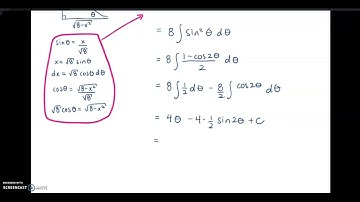 θ
√8-x²
sinθ = x/√8
x = √8 sinθ
dx = √8 cosθ dθ
cosθ = √8-x²/√8
√8 cosθ = √8-x²
= 8∫sin²θ dθ
= 8∫ 1-cos2θ/2 dθ
= 8∫ 1/2 dθ - 8/2 ∫ cos2θ dθ
= 4θ - 4·1/2 sin2θ + C
=
SCREENCAST